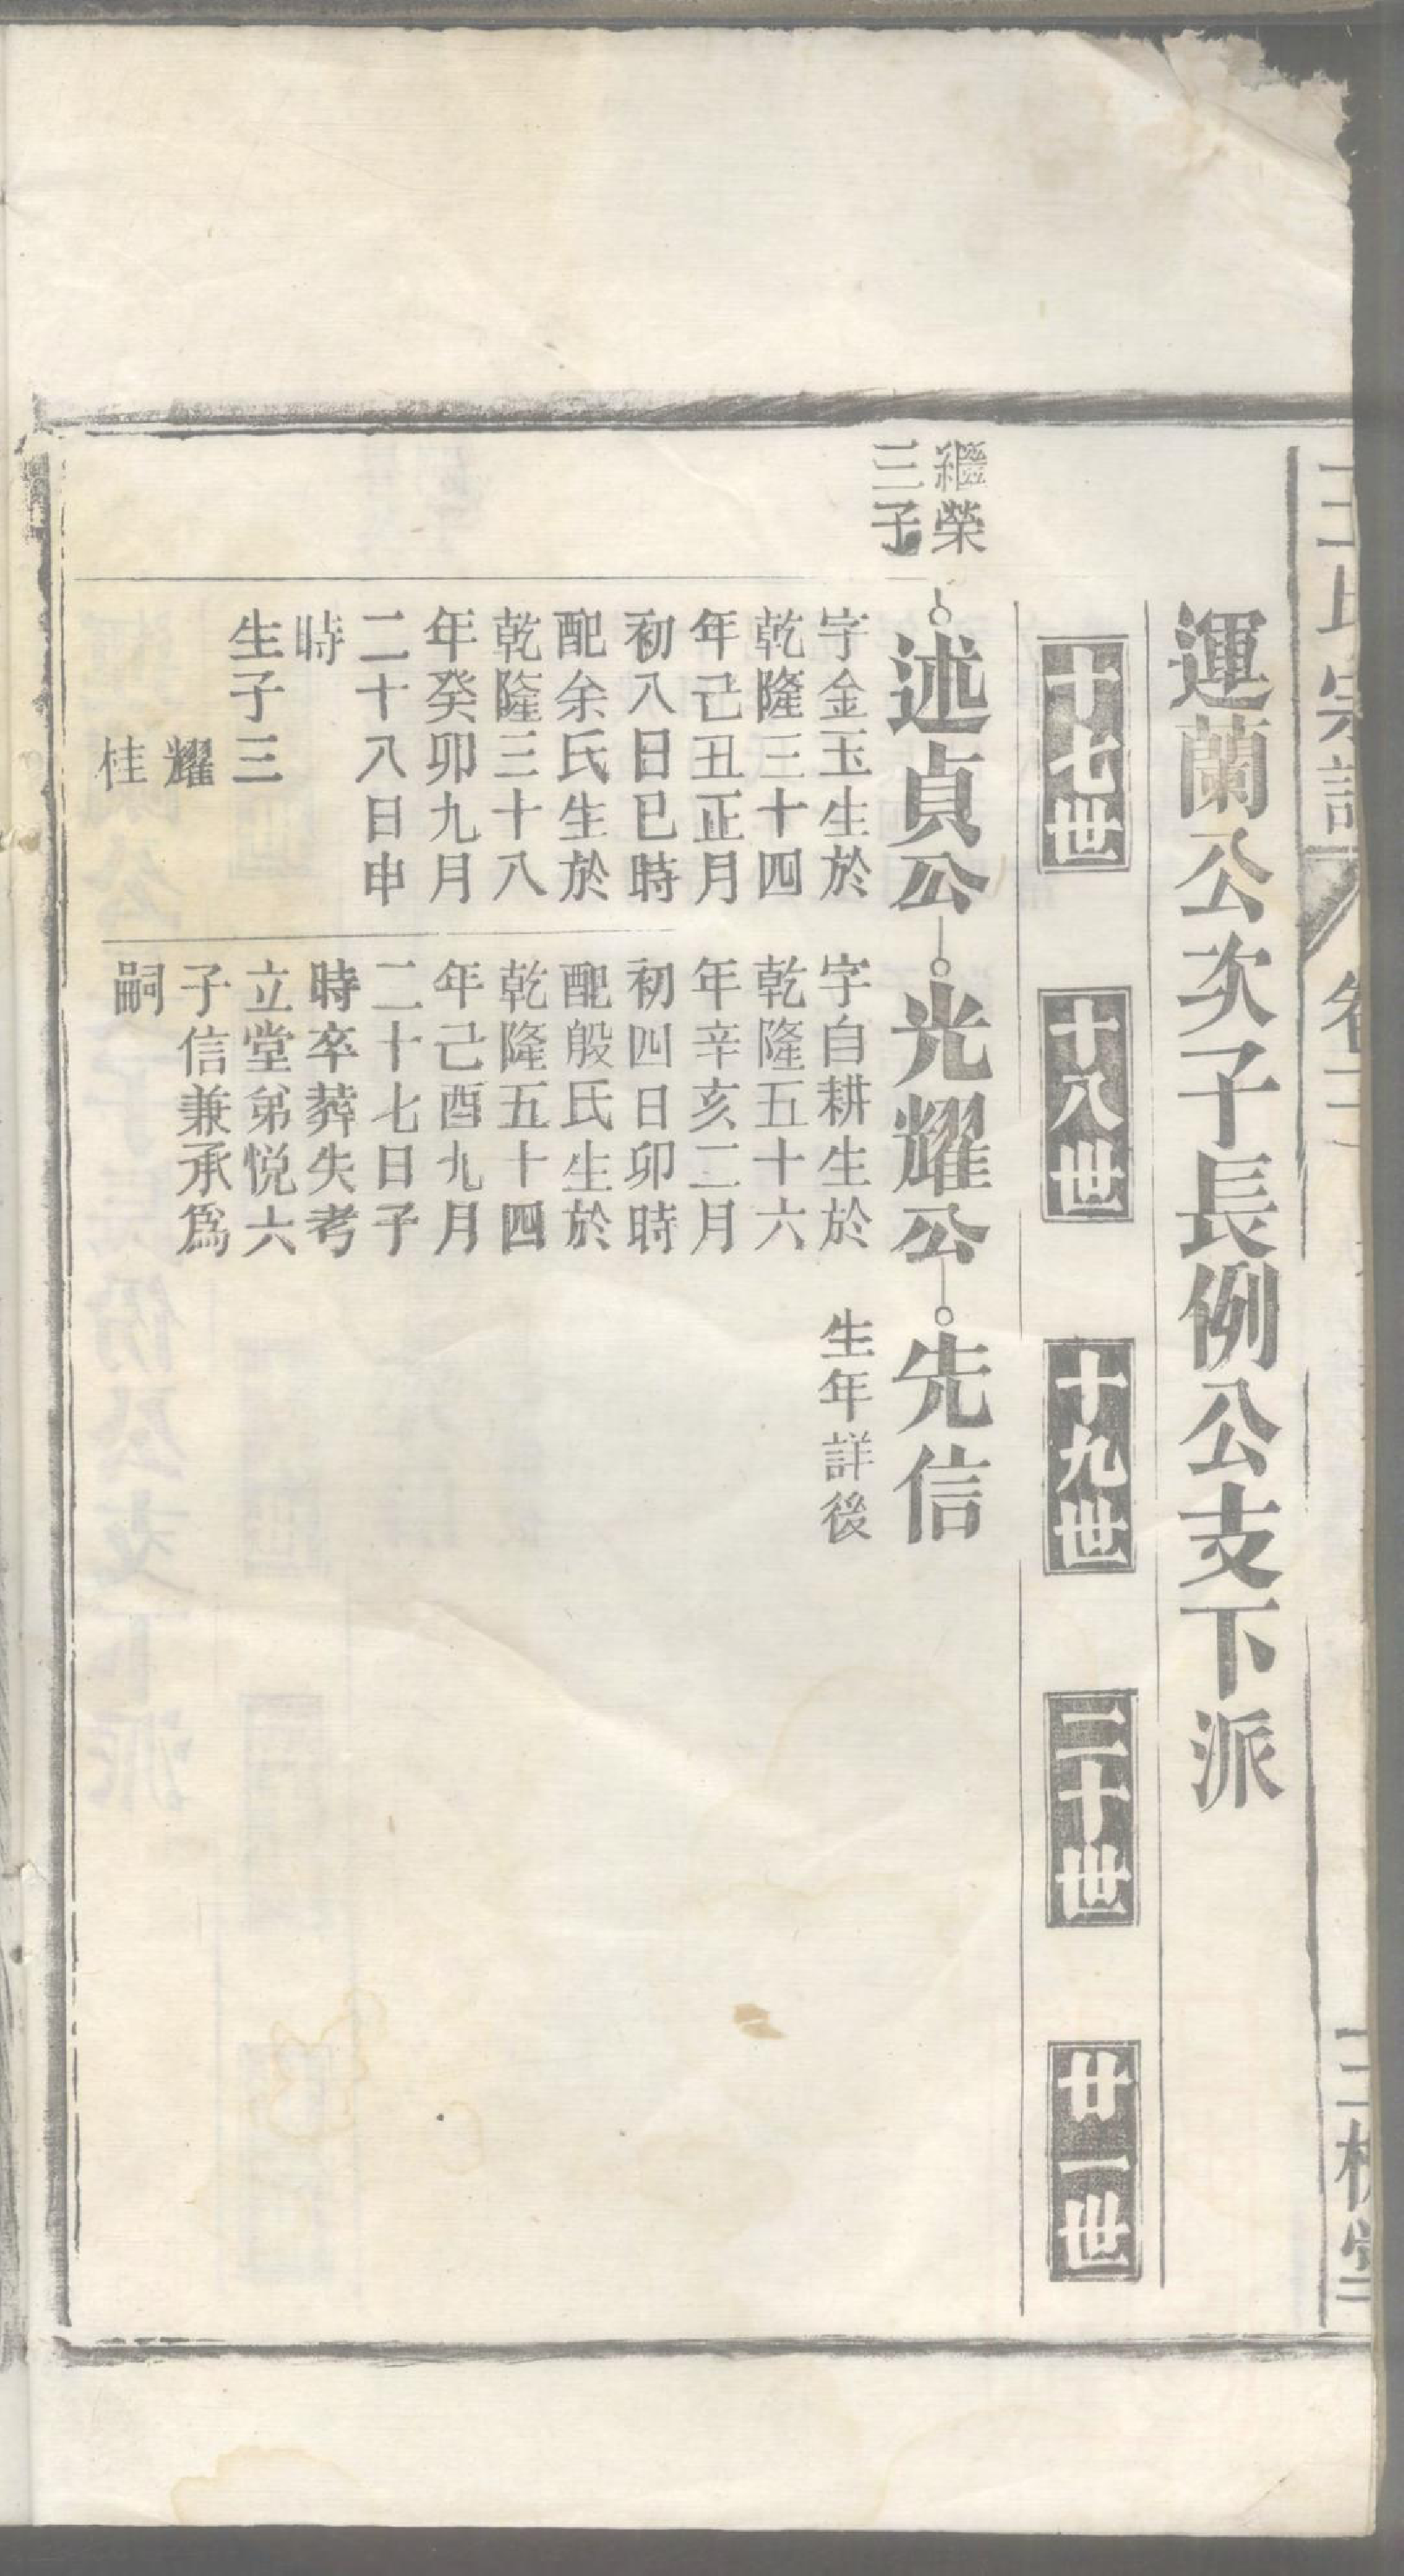 王氏宗譜
卷二
三槐堂
運蘭公次子長例公支下派
十七世
十八世
十九世
二十世
廿一世
繼榮
三子
述貞公
字金玉生於
乾隆三十四
年己丑正月
初八日巳時
配余氏生於
乾隆三十八
年癸卯九月
二十八日申
時
生子三
耀
桂
光耀公
字自耕生於
乾隆五十六
年辛亥二月
初四日卯時
配殷氏生於
乾隆五十四
年己酉九月
二十七日子
時卒葬失考
立堂弟悦六
子信兼承爲
嗣
先信
生年詳後